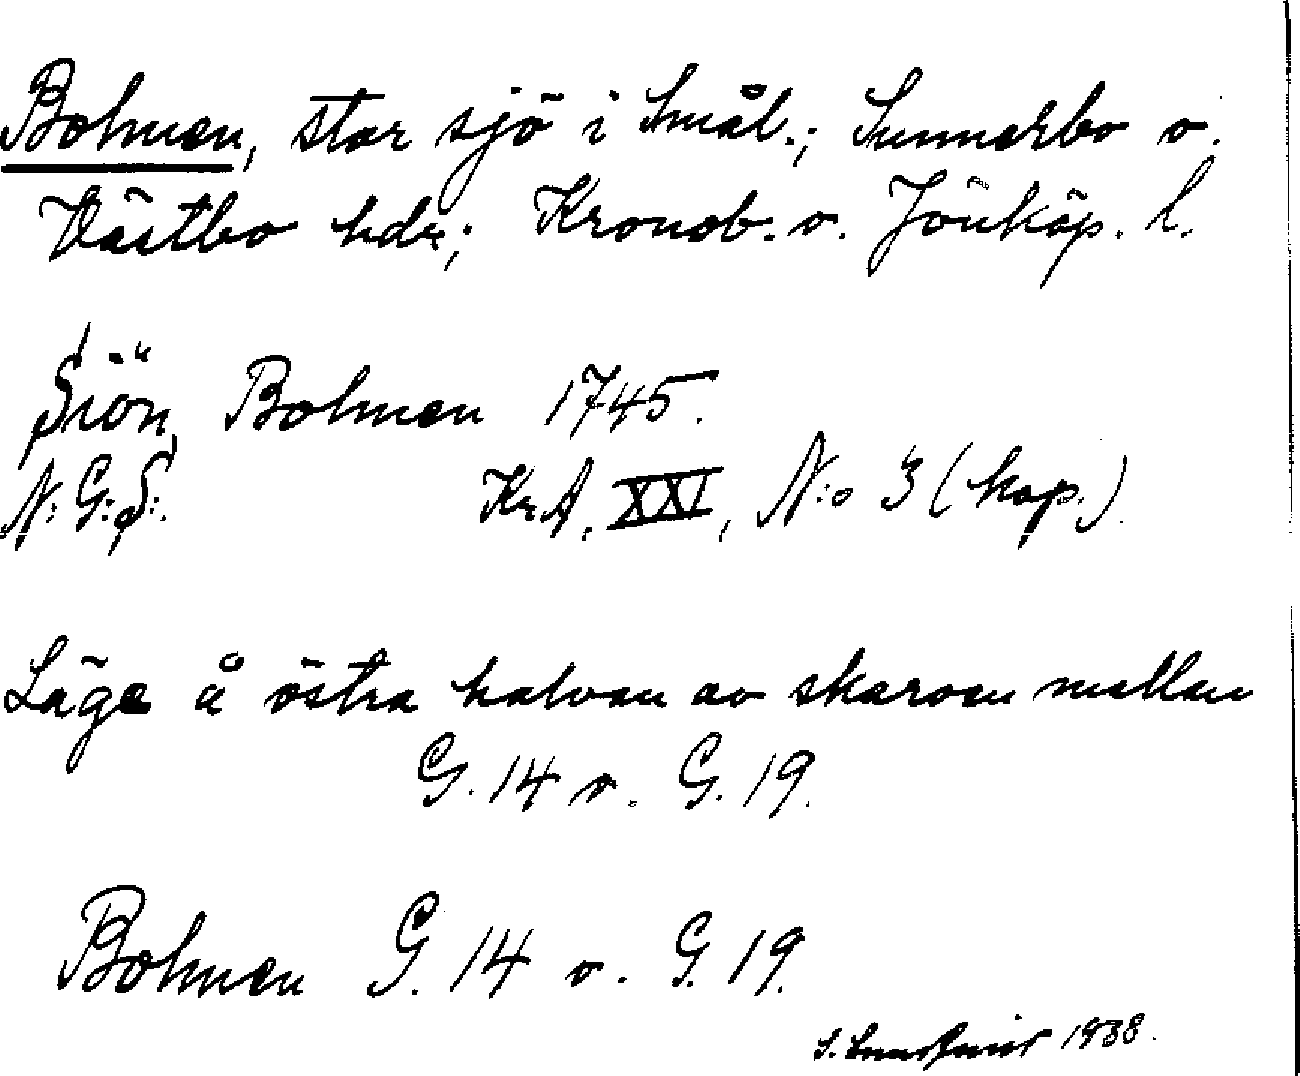 Bolmen, stor sjö i Smål.; Sunnerbo o.
Västbo hdr; Kronob. o. Jönköp. l.
Siön Bolmen 1745.
N:G:S:. KrA, XXI, N:o 3 (kop.)
Läge å östra halvan av skarven mellan
G. 14 o. G. 19.
Bolmen G. 14 o. G. 19.
1938.